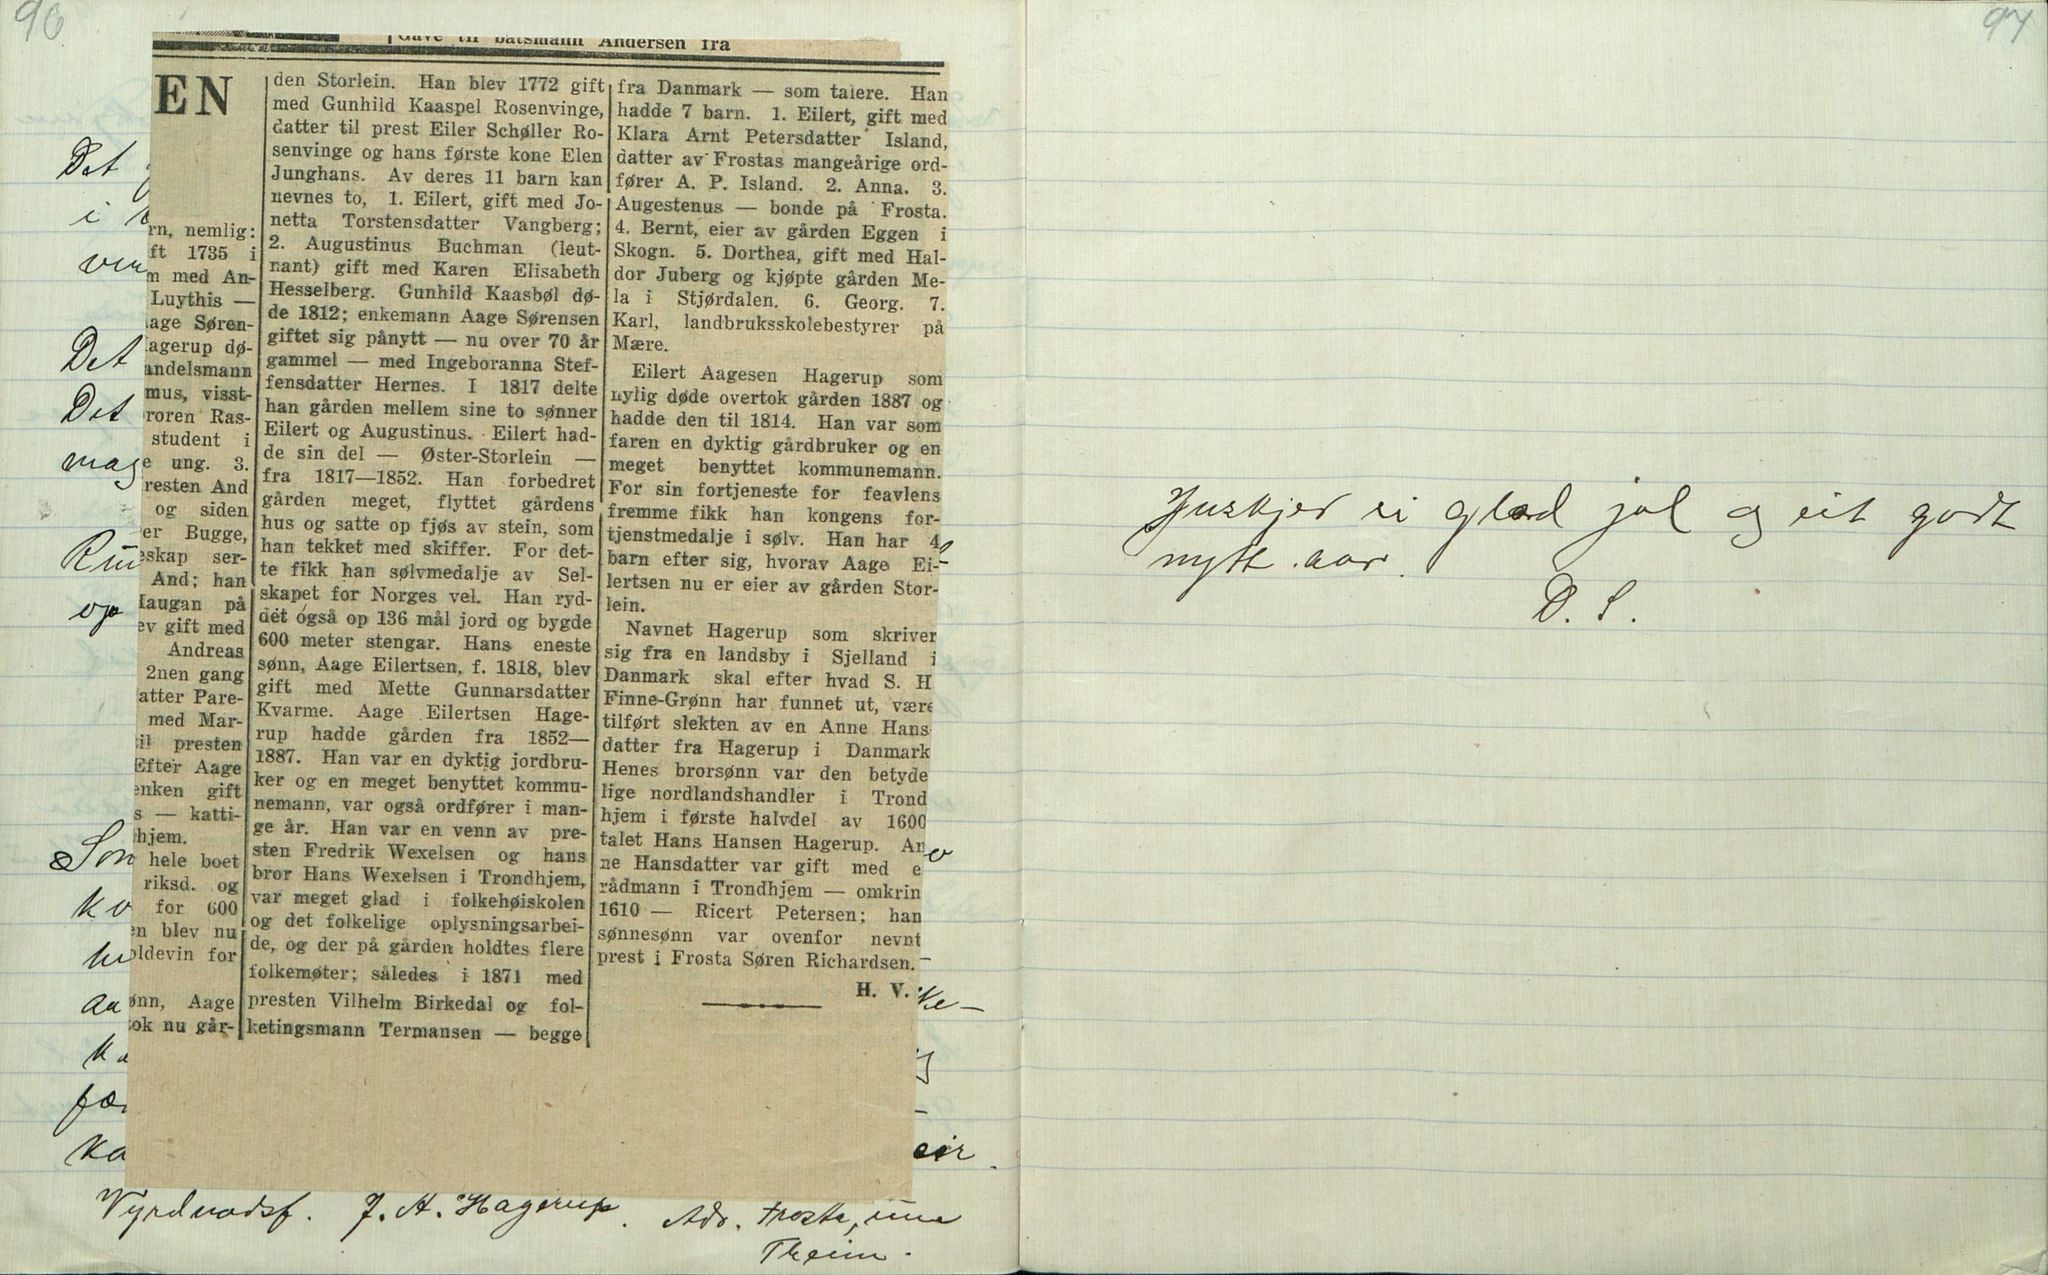 96
Gave til båtsmann Andersen fra
EN
Det
i
Det
Det
mag
op
rn, nemlig:
ft 1735 i
m med An-
Luythis —
age Søren-
agerup dø-
andelsmann
mus, visst-
roren Ras-
student i
e ung. 3.
resten And
og siden
er Bugge,
eskap ser-
And; han
Haugan på
ev gift med
Andreas
2nen gang
atter Pare-
med Mar-
il presten
Efter Aage
enken gift
s — katti-
hjem.
hele boet
riksd. og
for 600
en blev nu
oldevin for
ønn, Aage
tok nu går-
den Storlein. Han blev 1772 gift
med Gunhild Kaaspel Rosenvinge,
datter til prest Eiler Schøller Ro-
senvinge og hans første kone Elen
Junghans. Av deres 11 barn kan
nevnes to, 1. Eilert, gift med Jo-
netta Torstensdatter Vangberg;
2. Augustinus Buchman (leut-
nant) gift med Karen Elisabeth
Hesselberg. Gunhild Kaasbøl dø-
de 1812; enkemann Aage Sørensen
giftet sig pånytt — nu over 70 år
gammel — med Ingeboranna Stef-
fensdatter Hernes. I 1817 delte
han gården mellem sine to sønner
Eilert og Augustinus. Eilert had-
de sin del — Øster-Storlein —
fra 1817—1852. Han forbedret
gården meget, flyttet gårdens
hus og satte op fjøs av stein, som
han tekket med skiffer. For det-
te fikk han sølvmedalje av Sel-
skapet for Norges vel. Han ryd-
det også op 136 mål jord og bygde
600 meter stengar. Hans eneste
sønn, Aage Eilertsen, f. 1818, blev
gift med Mette Gunnarsdatter
Kvarme. Aage Eilertsen Hage-
rup hadde gården fra 1852—
1887. Han var en dyktig jordbru-
ker og en meget benyttet kommu-
nemann, var også ordfører i man-
ge år. Han var en venn av pre-
sten Fredrik Wexelsen og hans
bror Hans Wexelsen i Trondhjem,
var meget glad i folkehøiskolen
og det folkelige oplysningsarbei-
de, og der på gården holdtes flere
folkemøter; således i 1871 med
presten Vilhelm Birkedal og fol-
ketingsmann Termansen — begge
fra Danmark — som talere. Han
hadde 7 barn. 1. Eilert, gift med
Klara Arnt Petersdatter Island,
datter av Frostas mangeårige ord-
fører A. P. Island. 2. Anna. 3.
Augestenus — bonde på Frosta.
4. Bernt, eier av gården Eggen i
Skogn. 5. Dorthea, gift med Hal-
dor Juberg og kjøpte gården Me-
la i Stjørdalen. 6. Georg. 7.
Karl, landbruksskolebestyrer på
Mære.
Eilert Aagesen Hagerup som
nylig døde overtok gården 1887 og
hadde den til 1814. Han var som
faren en dyktig gårdbruker og en
meget benyttet kommunemann.
For sin fortjeneste for feavlens
fremme fikk han kongens for-
tjenstmedalje i sølv. Han har 4
barn efter sig, hvorav Aage Ei-
lertsen nu er eier av gården Stor-
lein.
Navnet Hagerup som skriver
sig fra en landsby i Sjelland i
Danmark skal efter hvad S. H
Finne-Grønn har funnet ut, være
tilført slekten av en Anne Hans
datter fra Hagerup i Danmark
Henes brorsønn var den betyde
lige nordlandshandler i Trond
hjem i første halvdel av 1600
talet Hans Hansen Hagerup. An
ne Hansdatter var gift med e
rådmann i Trondhjem — omkrin
1610 — Ricert Petersen; han
sønnesønn var ovenfor nevnt
prest i Frosta Søren Richardsen.
H. V.
eir.
Vyrdnadsf. J. A. Hagerup. Adr. Frosta,
Theim.
97
Ynskjer ei glad jol og eit godt
nytt aar.
D. S.